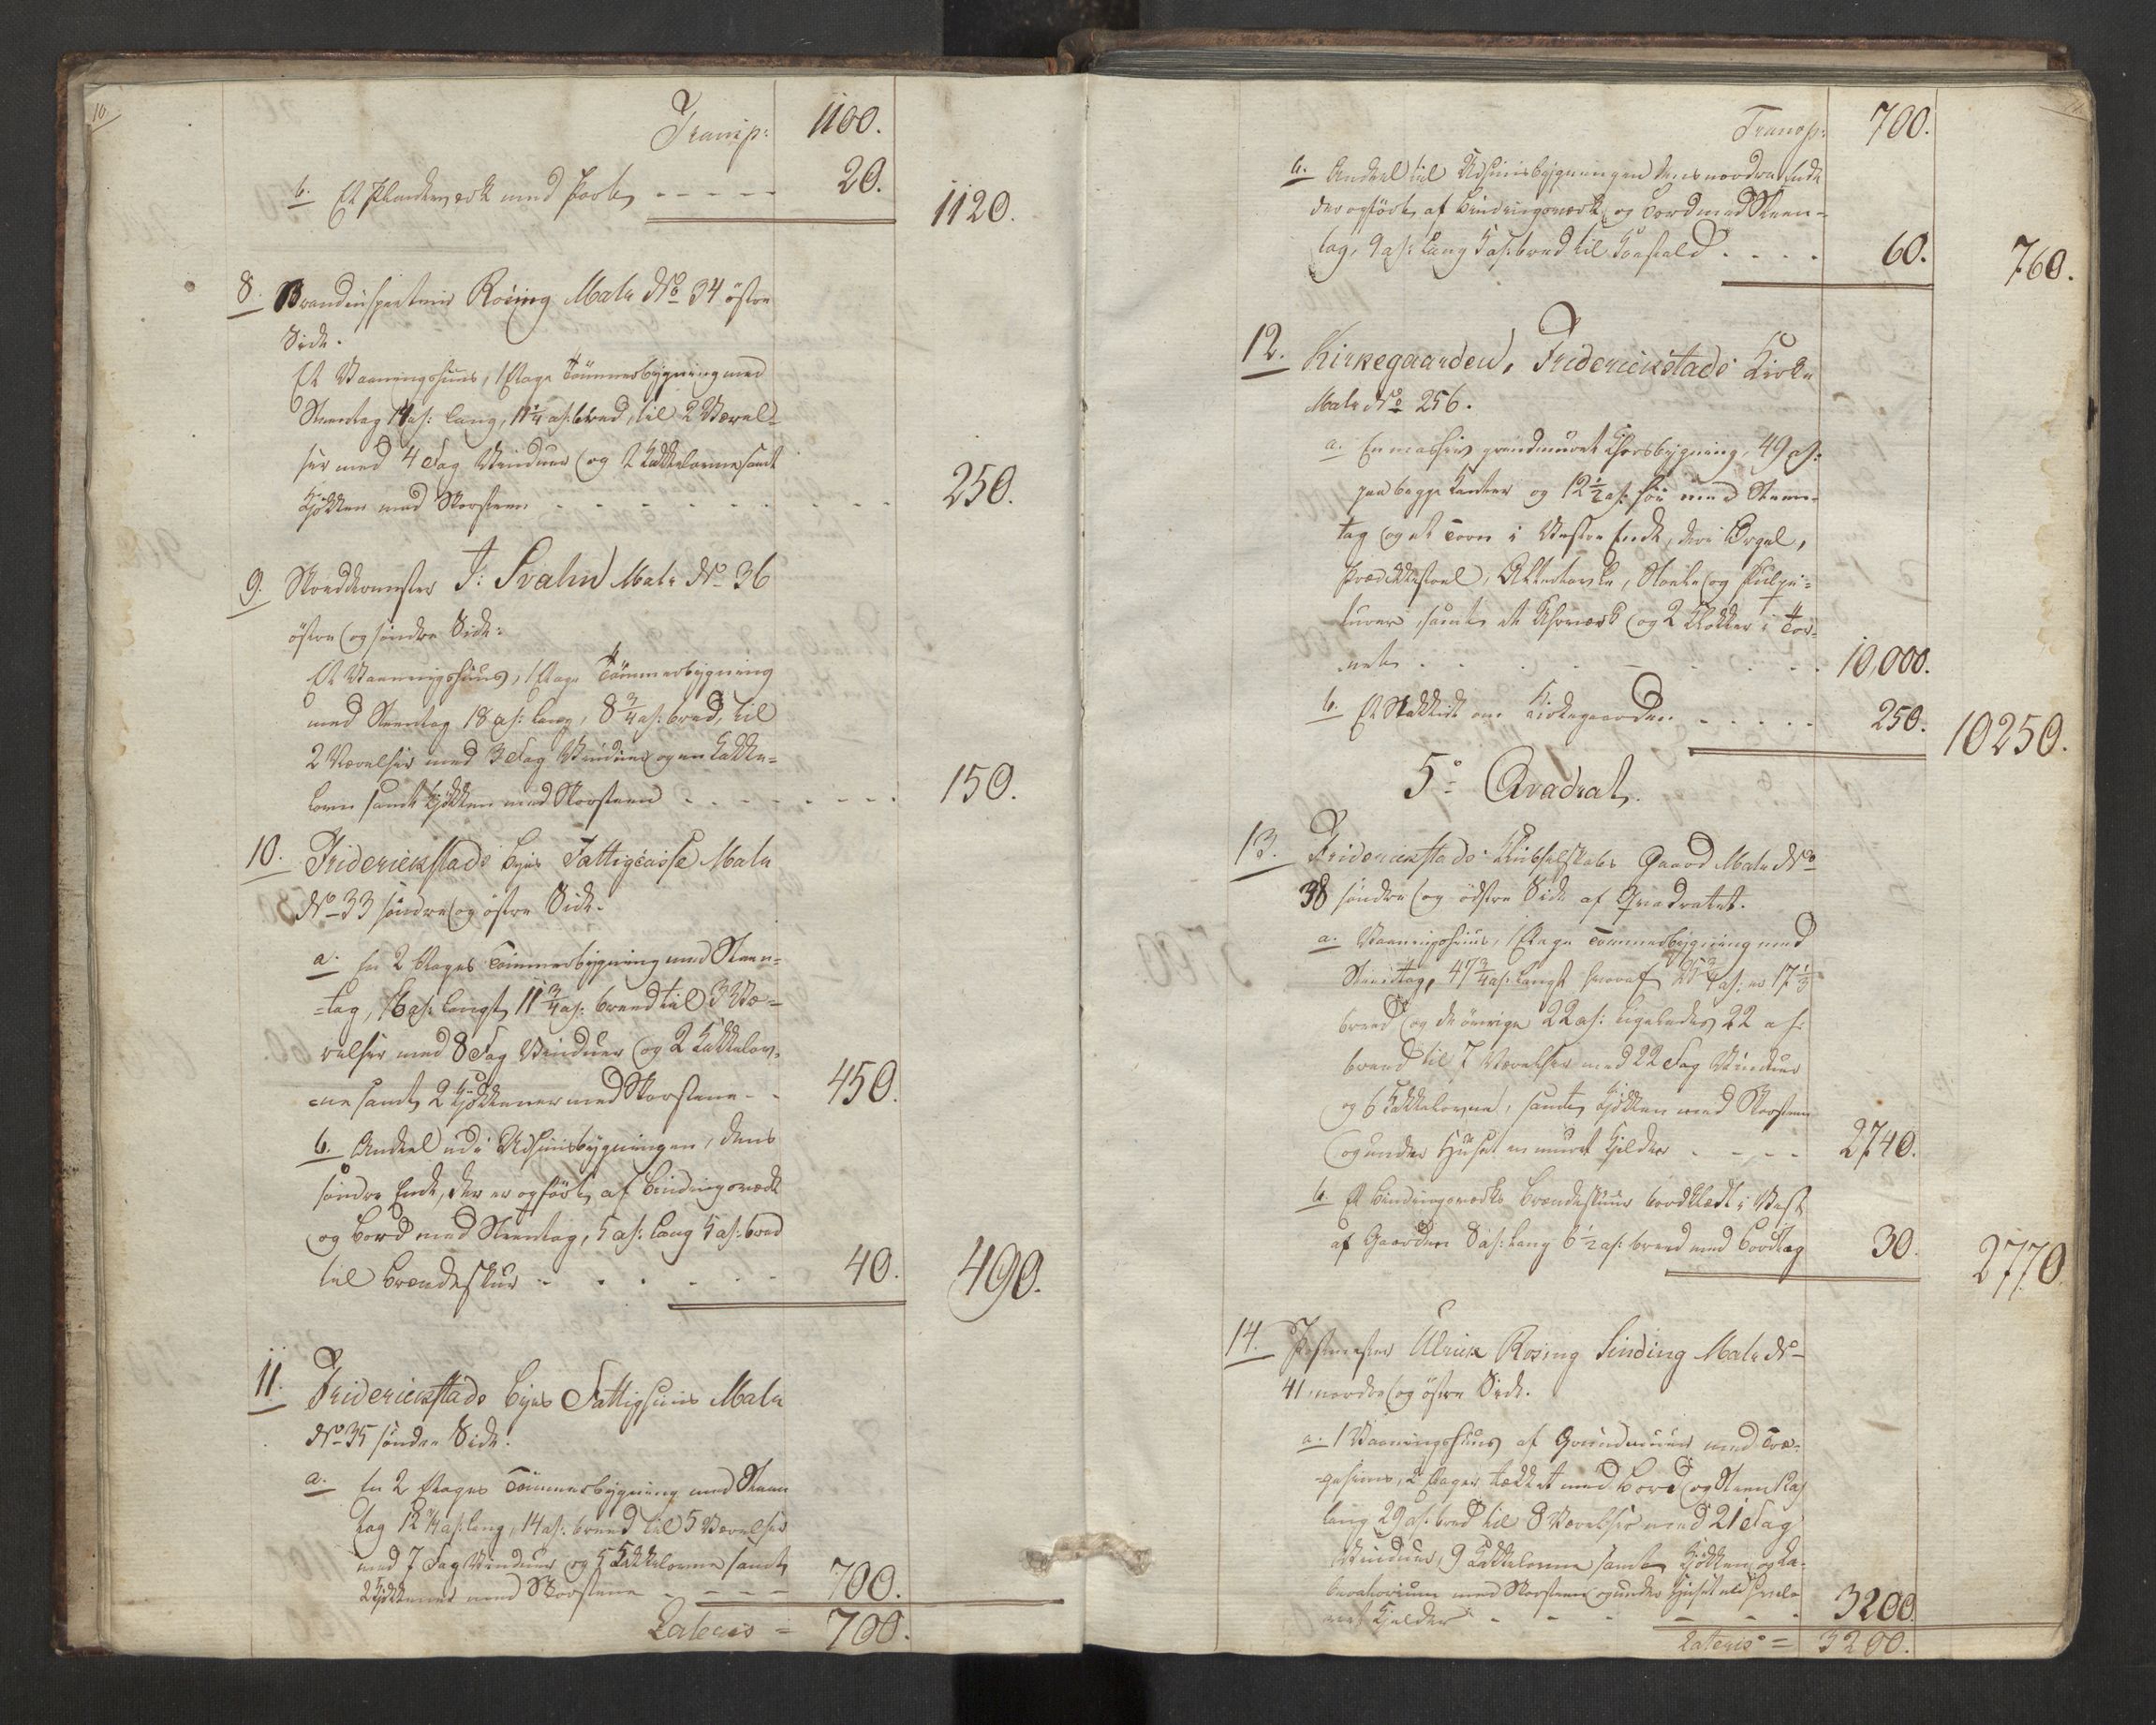 10.
Transp: 1100.
b. Et Plankeverk med Port - - - - - 20. 1120.
8. Brandinspecteur Rosing Matr. No 34 østre
Side.
Et Vaaningshuus, 1 Etage Tømmerbygning med
Steentag 14 al: lang, 11 1/4 al: bred, til 2 Værel-
ser med 4 Fag Vinduer og 2 Kakkelovne samt
Kjøkken med Skorsteen - - - - - - - - 250.
9. J: Svalin Matr No 36
østre og søndre Side:
Et Vaaningshuus, 1 Etage Tømmerbygning
med Steentag 18 al: lang, 8 3/4 al: bred, til
2 Værelser med 3 Fag Vinduer og en Kakke-
lovn samt Kjøkken med Skorsteen - - - - - - - 150.
10. Friderickstads Byes Fattigcasse Matr
No 33 søndre og østre Side.
a. En 2 Etages Tømmerbygning med Steen-
-tag, 16 al: langt, 11 3/4 al: breed til 3 Væ-
relser med 8 Fag Vinduer og 2 Kakkelov-
-ne samt 2 Kjøkkener med Skorstene - - 450.
b. Andeel udi Udhuusbygningen, dens
søndre Ende, der er opført af Bindingsverk
og Bord med Steentag, 5 al: lang 5 al: bred
til Brændeskur - - - - - - 40. 490.
11. Friderickstads Byes Fattighuus Matr
No 35 søndre Side.
a. En 2 Etages Tømmerbygning med Steen
tag 12 1/4 al: lang, 14 al: breed til 5 Værelser
med 7 Fag Vinduer og 5 Kakkelovne samt
2 Kjøkkener med Skorstene - - - - 700.
Lateris = 700.
Transp: 700.
b. Andeel til Udhuusbygningen dens nordre Ende
der opført af Bindingsverk og Bord med Steen-
tag, 9 al: lang 5 al: bred til Koestald - - - - 60. 760.
12. Kirkegaarden, Friderickstads Kirke
Matr No 256.
a. En massiv grundmuret Chorsbygning, 49 al:
paa begge Kanter og 12 1/2 al: høi med Steen-
tag og et Torn i Vestre Ende, deri Orgel,
Prædikkestoel, Altertavle, Stole og Pulpi-
turer, samt et Uhrverk og 2 Klokker i Tor-
net - - - - - - - - 10,000.
b. Et Stakkit om Kirkegaarden - - - - - 250. 10250.
5te Qvadrat.
13. Friderickstads Klubselskabs Gaard Matr No
38 søndre og ødstre Side af Qvadratet.
a. Vaaningshuus, 1 Etage Tømmerbygning med
Steentag, 47 3/4 al: langt hvoraf 25 3/4 al: er 17 1/3
breed og de øvrige 22 al: ligeledes 22 al:
breed til 7 Værelser med 22 Fag Vinduer
og 6 Kakkelovne, samt Kjøkken med Skorsteen
og under Huset en muret Kjelder - - - - 2740.
b. Et Bindingsverks Brændeskuur bordklædt i Vest
af Gaarden 8 al: lang 6 1/2 al: breed med Bordtag 30. 2770.
14. Postmester Ulrick Rosing Sinding Matr No
41 nordre og østre Side.
a. 1 Vaaningshuus af Grundmuur med Træ-
2 Etager tækket med Bord og Steen
lang 29 al: bred til 8 Værelser med 21 Fag
Vinduer, 9 Kakkelovne samt Kjøkken og La-
boratorium med Skorsteen og under Huset
Kjelder - - - - - - 3200
Lateris = 3200.